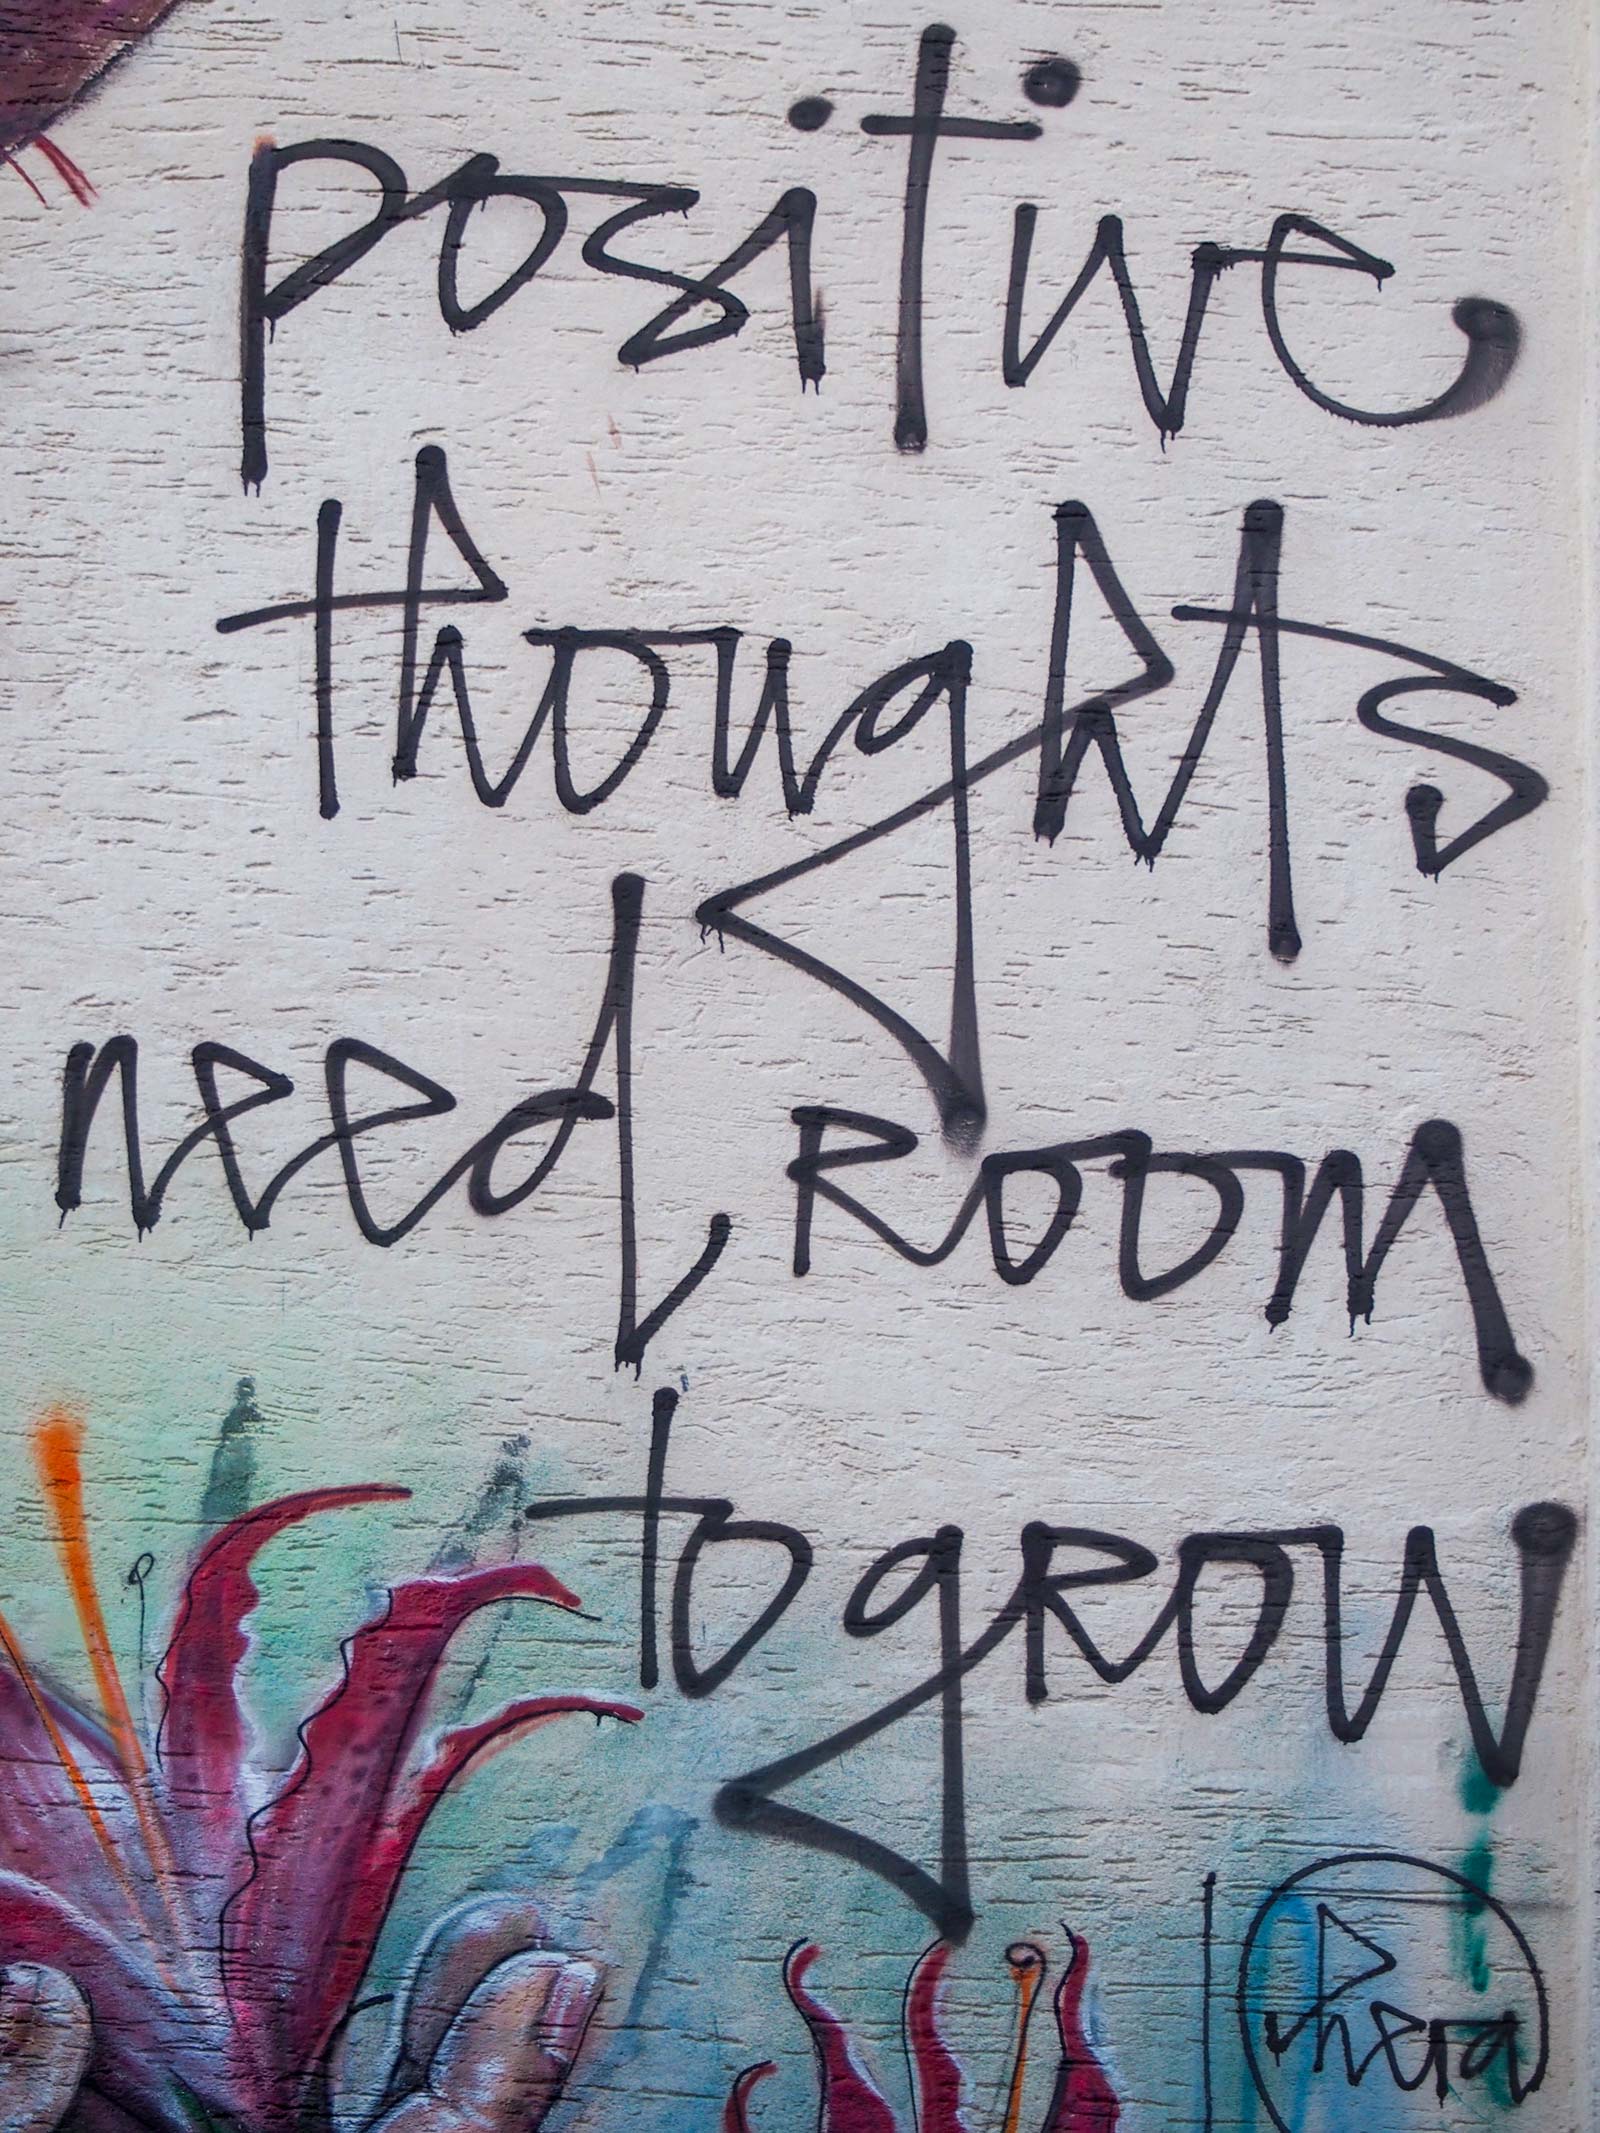 positive
thoughts
need room
to grow